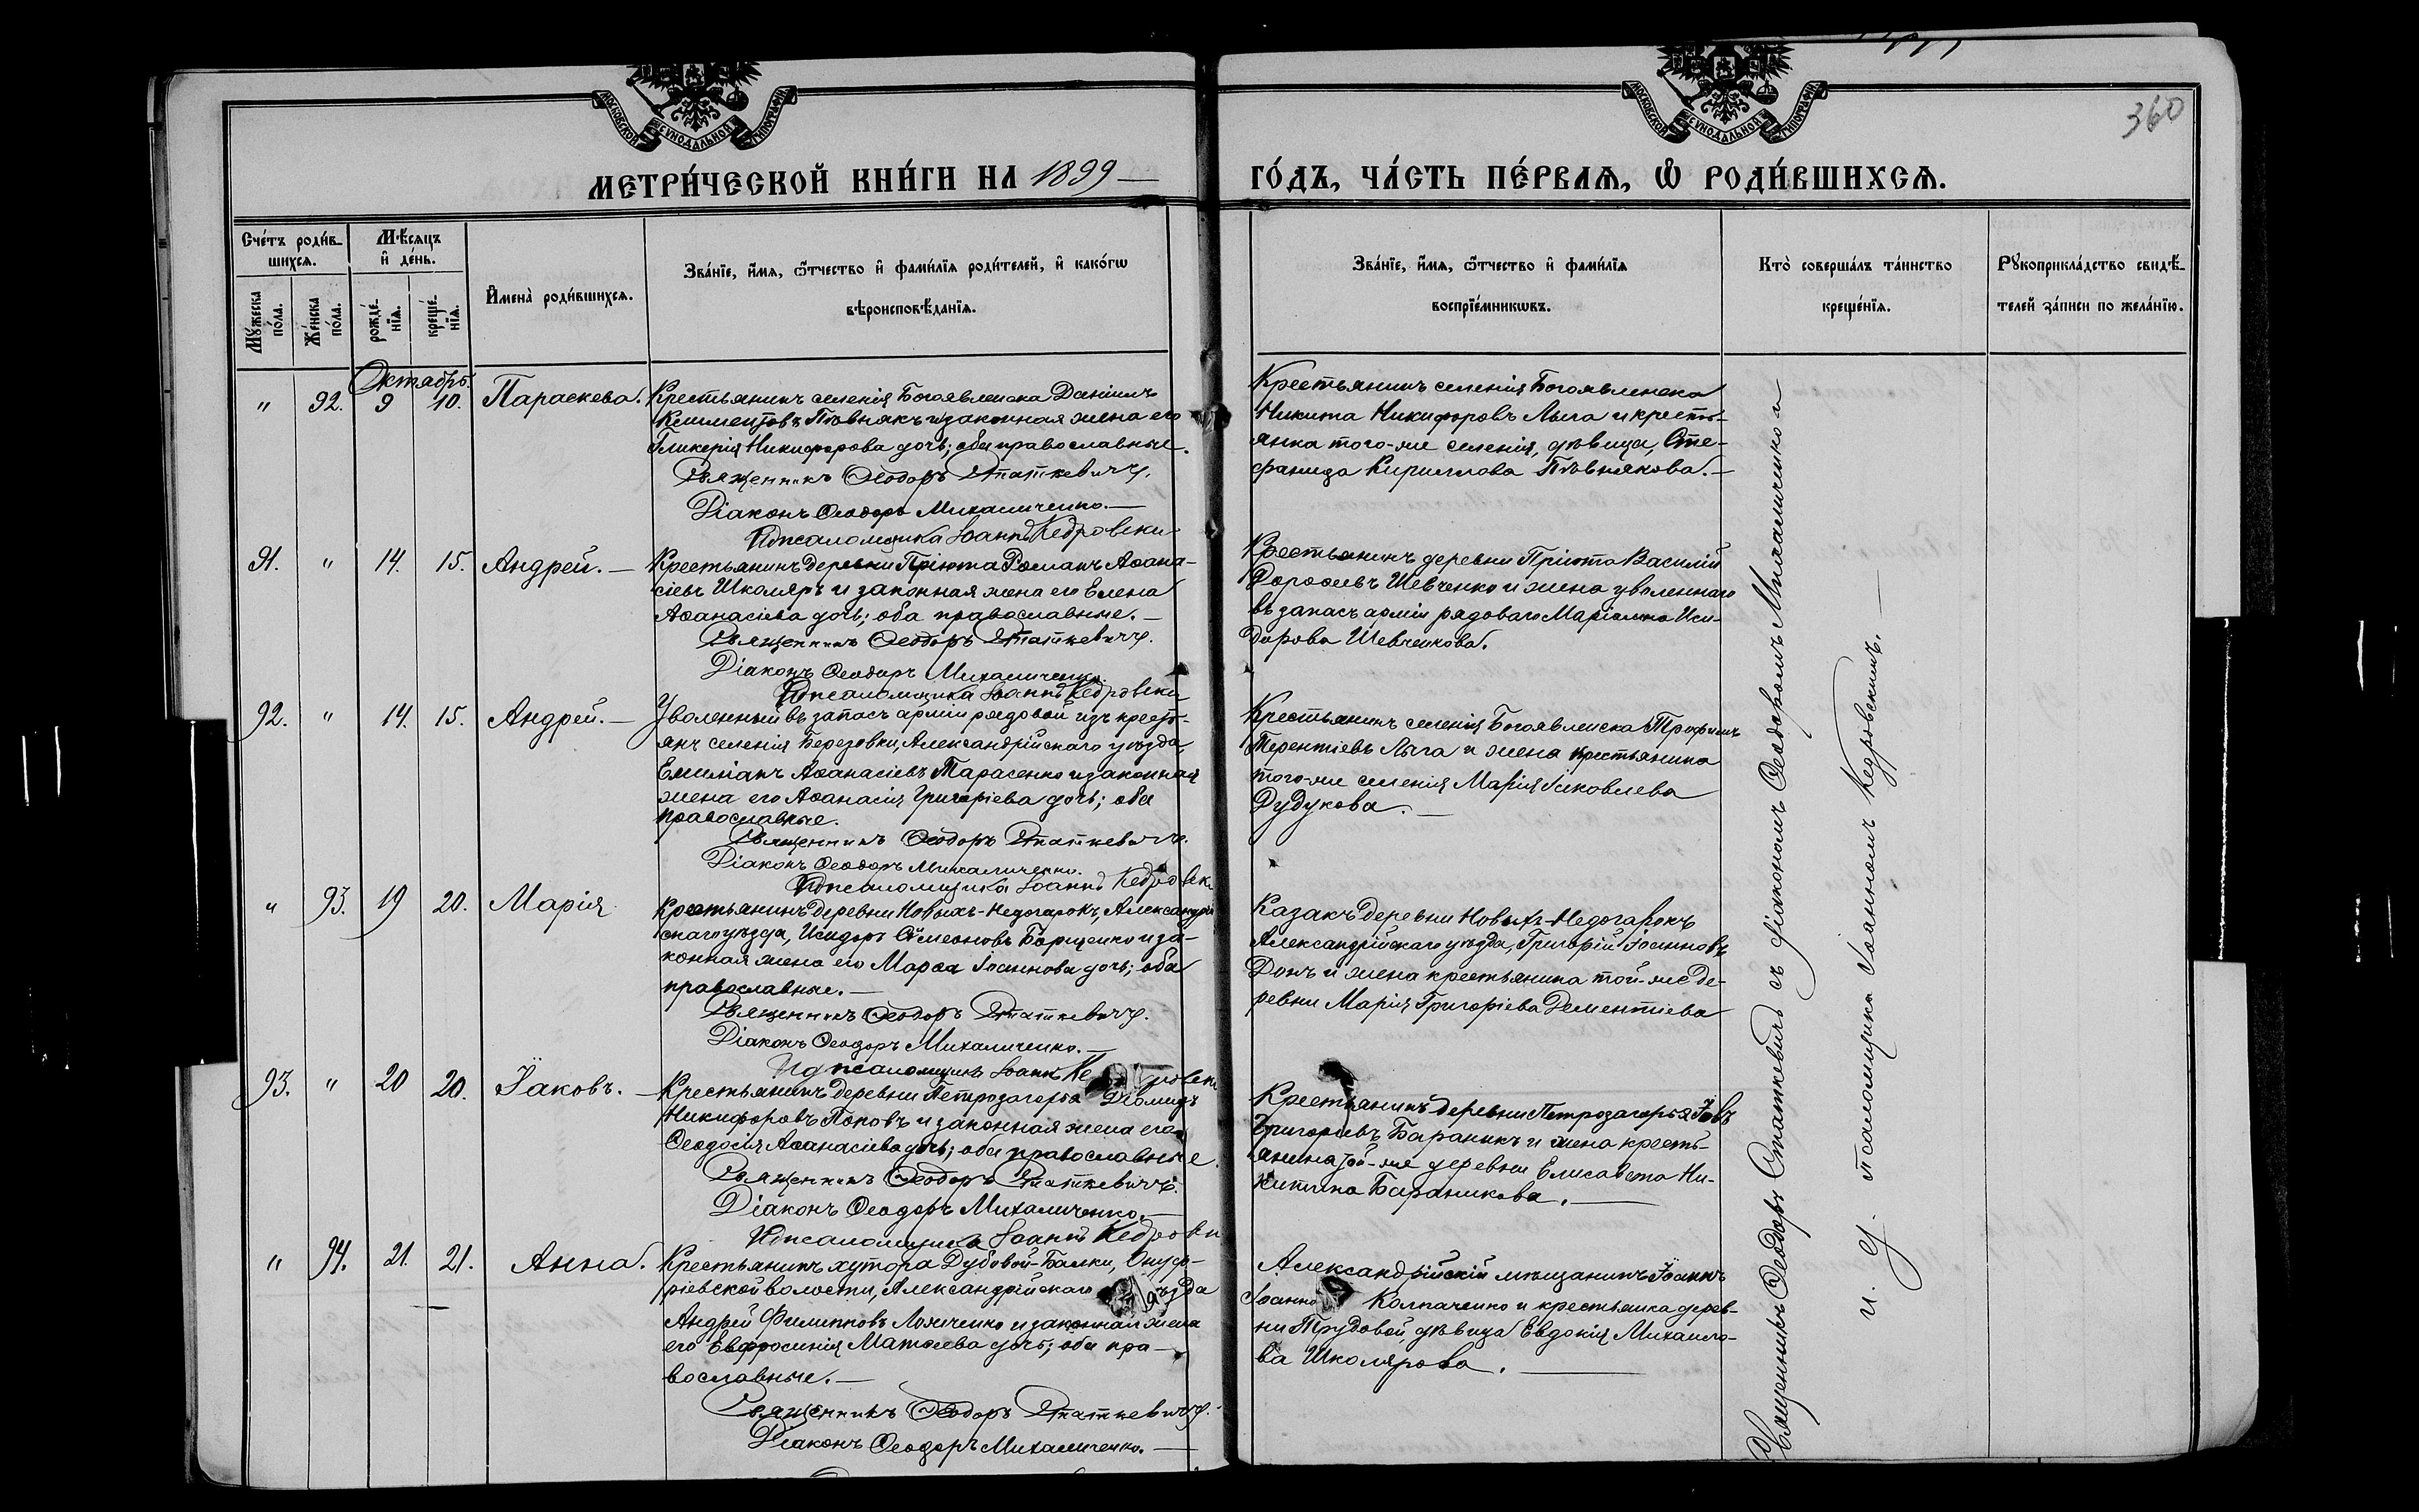 МОСКОВСКОЙ СѴНОДАЛЬНОЙ ТИПОГРАФІИ
МОСКОВСКОЙ СѴНОДАЛЬНОЙ ТИПОГРАФІИ
360
МЕТРИ́ЧЕСКОЙ КНИ́ГИ НА 1899 —
ГО́ДЪ, ЧА́СТЬ ПЕ́РВАѦ, Ѽ РОДИ́ВШИХСѦ.
Сче́тъ роди́в-
шихсѧ.
Мꙋ́жеска по́ла.
Же́нска по́ла.
Мѣ́сѧцъ
и҆ де́нь.
рожде́-
нїѧ.
креще́-
нїѧ.
И҆мена̀ роди́вшихсѧ.
Зва́нїе, и҆́мѧ, ѻ҆́тчество и҆ фами́лїѧ роди́телей, и҆ како́гѡ
вѣроисповѣ́данїѧ.
Зва́нїе, и҆́мѧ, ѻ҆́тчество и҆ фами́лїѧ
воспрїе́мникѡвъ.
Кто̀ соверша́лъ та́инство
креще́нїѧ.
Рꙋкоприкла́дство свидѣ́-
телей за́писи по жела́нїю.
Октябрь.
" 92. 9 10. Параскева.
Крестьянинъ селенія Богоявленска Даніилъ
Климентовъ Пѣвнякъ и законная жена его
Гликерія Никифорова дочь; оба православные.
Священникъ Ѳеодоръ Статкевичъ.
Діаконъ Ѳеодоръ Михаличенко. —
И д псаломщика Іоаннъ Кедровски
Крестьянинъ селенія Богоявленска
Никита Никифоровъ Лыга и кресть-
янка того-же селенія, дѣвица, Сте-
фанида Кириллова Пѣвнякова. —
91. " 14. 15. Андрей. —
Крестьянинъ деревни Пріюта Романъ Аѳана-
сіевъ Школяръ и законная жена его Елена
Аѳанасіева дочь; оба православные. —
Священникъ Ѳеодоръ Статкевичъ.
Діаконъ Ѳеодоръ Михаличенко.
И д псаломщика Іоаннъ Кедровски
Крестьянинъ деревни Пріюта Василій
Дороѳеевъ Шевченко и жена уволеннаго
въ запасъ арміи рядоваго Маріамна Иси-
дорова Шевченкова.
92. " 14. 15. Андрей. —
Уволенный въ запасъ арміи рядовой изъ кресть-
янъ селенія Березовки, Александрійскаго уѣзда,
Емиліанъ Аѳанасіевъ Тарасенко и законная
жена его Аѳанасія Григоріева дочь; оба
православные.
Священникъ Ѳеодоръ Статкевичъ.
Діаконъ Ѳеодоръ Михаличенко.
И д псаломщика Іоаннъ Кедровск
Крестьянинъ селенія Богоявленска Трофимъ
Терентіевъ Лыга и жена крестьянина
того-же селенія Марія Іаковлева
Дудукова. —
" 93. 19 20. Марія
Крестьянинъ деревни Новыхъ-Недогарокъ, Александрій
скаго уѣзда, Исидоръ Сѵмеоновъ Борщенко и за-
конная жена его Марѳа Іоаннова дочь; оба
православные. —
Священникъ Ѳеодоръ Статкевичъ.
Діаконъ Ѳеодоръ Михаличенко. —
И д псаломщика Іоаннъ Ке дровски
Казакъ деревни Новыхъ-Недогарокъ
Александрійскаго уѣзда, Григорій Іоанновъ
Донъ и жена крестьянина той-же де-
ревни Марія Григоріева Дементіева
93. " 20 20. Іаковъ. —
Крестьянинъ деревни Петрозагорья Діомидъ
Никифоровъ Поповъ и законная жена его
Ѳеодосія Аѳанасіева дочь; оба православные.
Священникъ Ѳеодоръ Статкевичъ.
Діаконъ Ѳеодоръ Михаличенко. —
И д псаломщика Іоаннъ Кедровск
Крестьянинъ деревни Петрозагорья Іовъ
Григоріевъ Бараникъ и жена кресть-
янина той-же деревни Елисавета Ни-
китина Бараникова. —
" 94. 21. 21. Анна.
Крестьянинъ хутора Дубовой-Балки, Онуф-
ріевской волости, Александрійскаго уѣзда
Андрей Филипповъ Лозиченко и законная жена
его Евфросинія Матѳеева дочь; оба пра-
вославные. —
Священникъ Ѳеодоръ Статкевичъ.
Діаконъ Ѳеодоръ Михаличенко. —
Александрійскій мѣщанинъ Іоаннъ
Іоанно Колпаченко и крестьянка дерев-
ни Трудовой, дѣвица Евдокія Михаило-
ва Школярова. —
Священникъ Ѳеодоръ Статкевичъ съ діакономъ Ѳеодоромъ Михаличенко и
и. д. псаломщика Іоанномъ Кедровскимъ. —